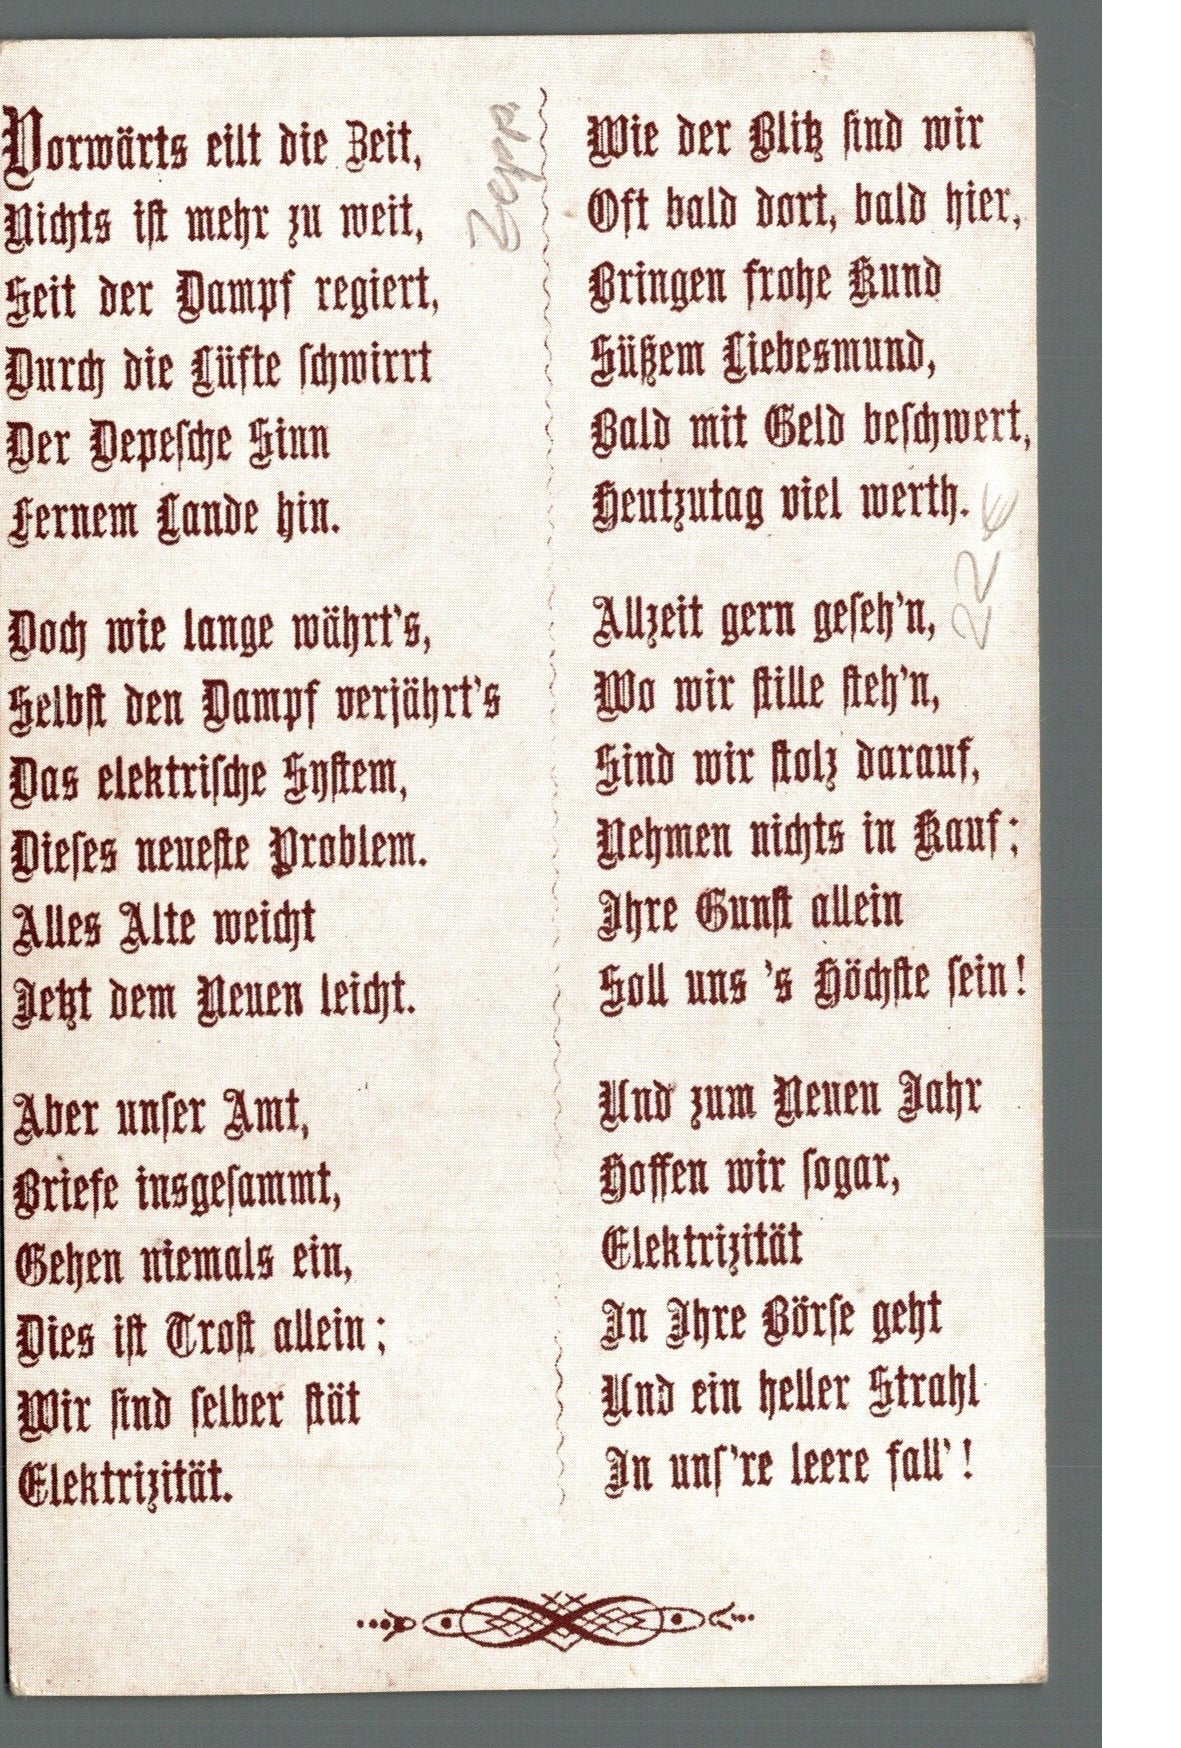 Vorwärts eilt die Zeit,
Nichts ist mehr zu weit,
Seit der Dampf regiert,
Durch die Lüfte schwirrt
Der Depesche Sinn
Fernem Lande hin.
Doch wie lange währt's,
Selbst den Dampf verjährt's
Das elektrische System,
Dieses neueste Problem.
Alles Alte weicht
Jetzt dem Neuen leicht.
Aber unser Amt,
Briefe insgesammt,
Gehen niemals ein,
Dies ist Trost allein;
Wir sind selber stät
Elektrizität.
Zepp.
Wie der Blitz sind wir
Oft bald dort, bald hier,
Bringen frohe Kund
Süßem Liebesmund,
Bald mit Geld beschwert,
Heutzutag viel werth.
22 €
Allzeit gern geseh'n,
Wo wir stille steh'n,
Sind wir stolz darauf,
Nehmen nichts in Kauf;
Ihre Gunst allein
Soll uns 's Höchste sein!
Und zum Neuen Jahr
Hoffen wir sogar,
Elektrizität
In Ihre Börse geht
Und ein heller Strahl
In uns're leere fall'!